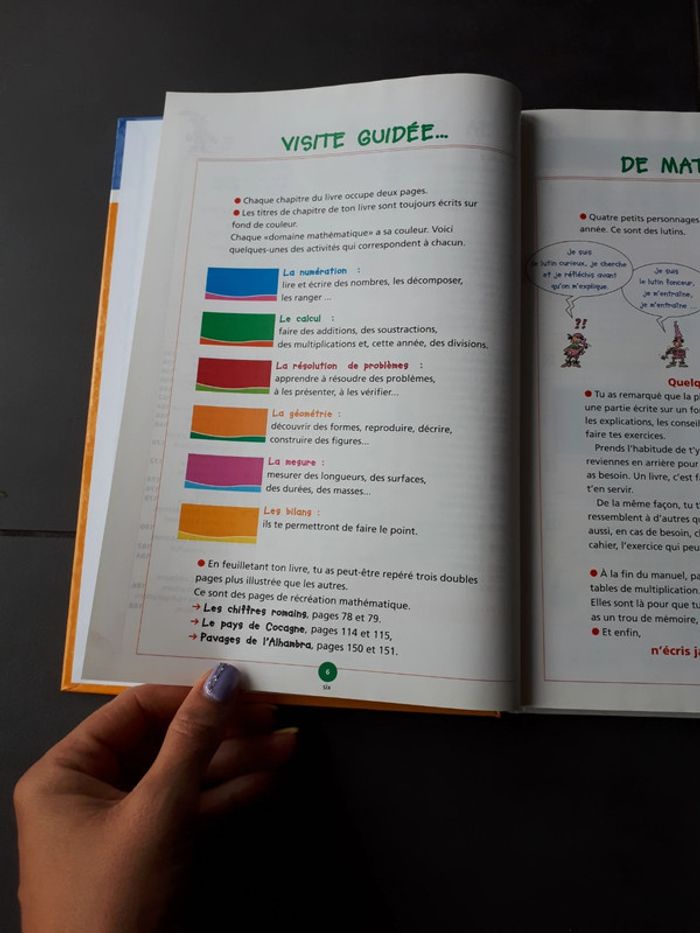 VISITE GUIDÉE...
● Chaque chapitre du livre occupe deux pages.
● Les titres de chapitre de ton livre sont toujours écrits sur
fond de couleur.
Chaque «domaine mathématique» a sa couleur. Voici
quelques-unes des activités qui correspondent à chacun.
La numération :
lire et écrire des nombres, les décomposer,
les ranger ...
Le calcul :
faire des additions, des soustractions,
des multiplications et, cette année, des divisions.
La résolution de problèmes :
apprendre à résoudre des problèmes,
à les présenter, à les vérifier...
La géométrie :
découvrir des formes, reproduire, décrire,
construire des figures...
La mesure :
mesurer des longueurs, des surfaces,
des durées, des masses...
Les bilans :
ils te permettront de faire le point.
● En feuilletant ton livre, tu as peut-être repéré trois doubles
pages plus illustrée que les autres.
Ce sont des pages de récréation mathématique.
→ Les chiffres romains, pages 78 et 79.
→ Le pays de Cocagne, pages 114 et 115,
→ Pavages de l'Alhambra, pages 150 et 151.
6
six
DE MAT
● Quatre petits personnages
année. Ce sont des lutins.
je suis
le lutin curieux, je cherche
et je réfléchis avant
qu'on m'explique.
je suis
le lutin fonceur,
je m'entraîne,
je m'entraîne ...
?!
Quelq
● Tu as remarqué que la p
une partie écrite sur un fo
les explications, les conseil
faire tes exercices.
Prends l'habitude de t'y
reviennes en arrière pour
as besoin. Un livre, c'est f
t'en servir.
De la même façon, tu t'
ressemblent à d'autres q
aussi, en cas de besoin, c
cahier, l'exercice qui peu
● À la fin du manuel, pa
tables de multiplication.
Elles sont là pour que tu
as un trou de mémoire,
● Et enfin,
n'écris ja